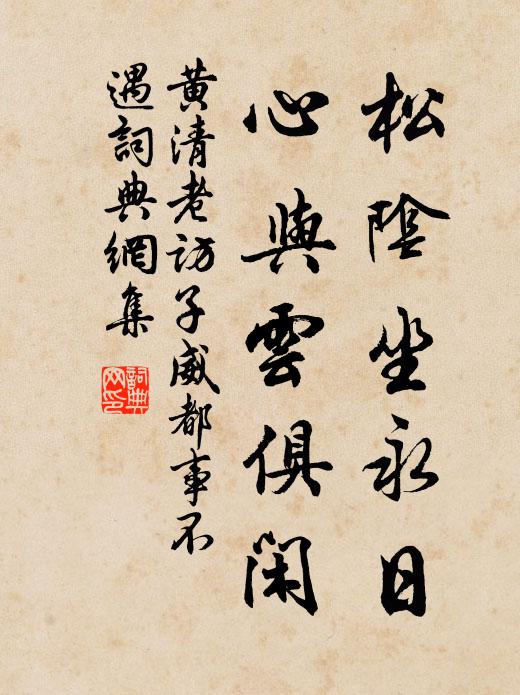 松陰坐永日
心與雲俱閑
黄清老訪子威都事不
遇詞典網集
詞典
网印